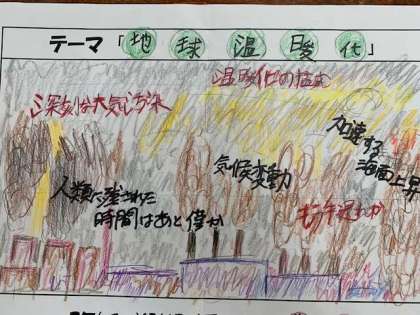 テーマ「地球温暖化」
温暖化の
深刻な大気汚染
加速する
海面上昇
気候変動
人類に残された
時間はあと僅か
もう手遅れか